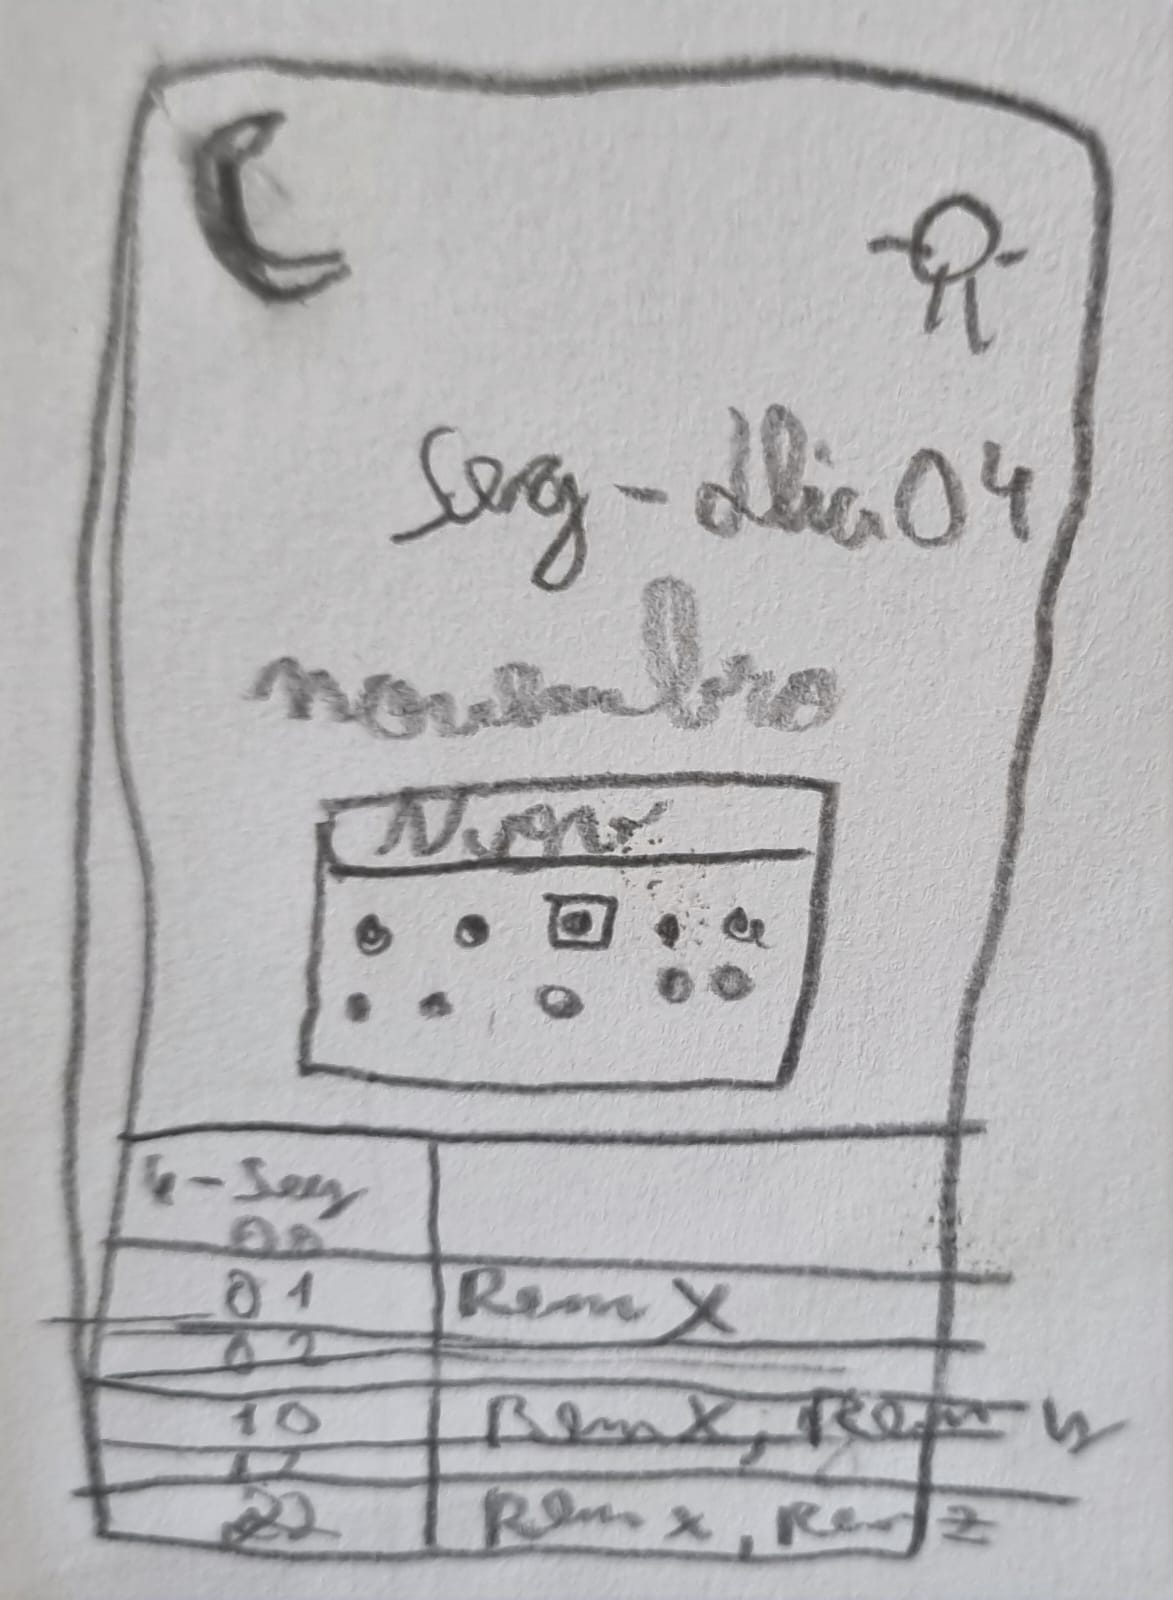 Seg - dia 04
novembro
4 - Seg
00
01 Rem X
02
10 Rem X, Rem y
22 Rem x, Rem z